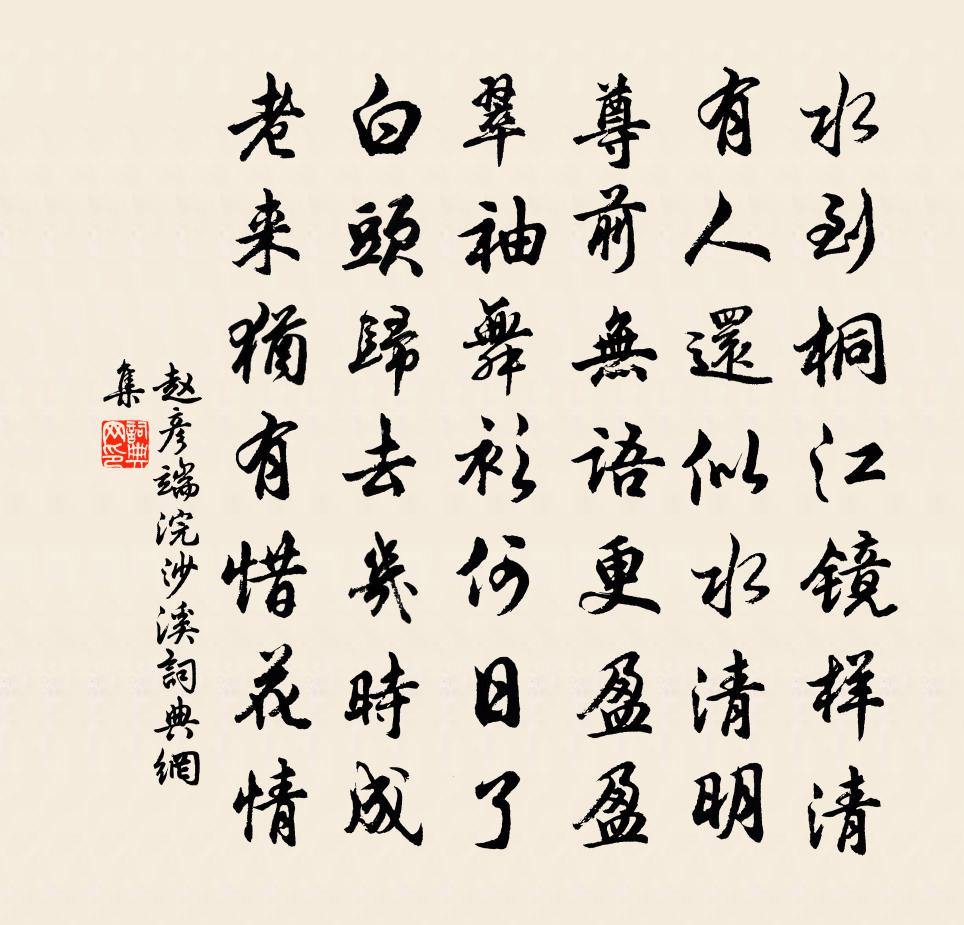 水到桐江镜样清
有人還似水清明
尊前無語更盈盈
翠袖舞衫何日了
白頭歸去幾時成
老来猶有惜花情
赵彦端浣沙溪詞典網
集
詞典
网印